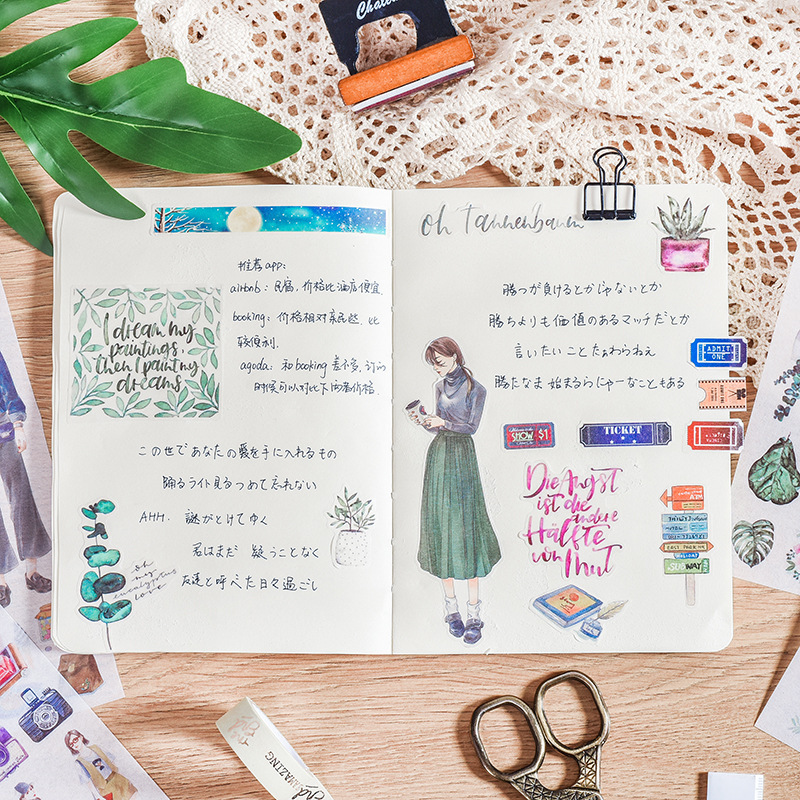 Chate
oh Tannenbaum
推荐app:
airbnb: 民宿,价格比酒店便宜
booking: 价格相对亲民些,比
较便利.
agoda: 和booking差不多,订的
时候可以对比下两者价格.
I dream my
paintings,
then I paint my
dreams
この世であなたの愛を手に入れるもの
踊るライト見るつめて忘れない
AHH. 謎がとけてゆく
君はまだ 疑うことなく
友達と呼べた日々過ごし
oh
my
eucalyptus
love
勝つが負けるとかじゃないとか
勝ちよりも価値のあるマッチだとか
言いたいことたぁわらねぇ
勝たなま始まるらにゃーなこともある
ADMIT
ONE
SHOW $1
TICKET
Die Angst
ist die
andere
Hälfte
von Mut
SUBWAY
AMAZING